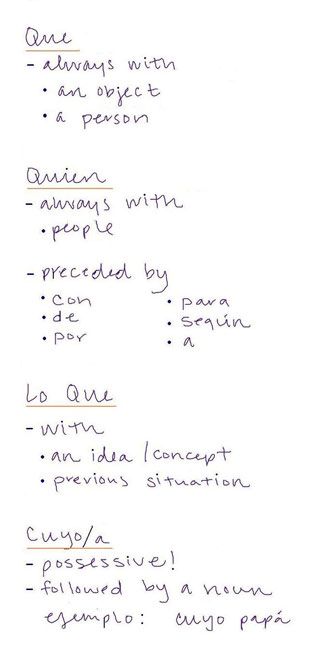 Que
- always with
• an object
• a person
Quien
- always with
• people
- preceded by
• con • para
• de • según
• por • a
Lo Que
- with
• an idea/concept
• previous situation
Cuyo/a
- possessive!
- followed by a noun
ejemplo: cuyo papá